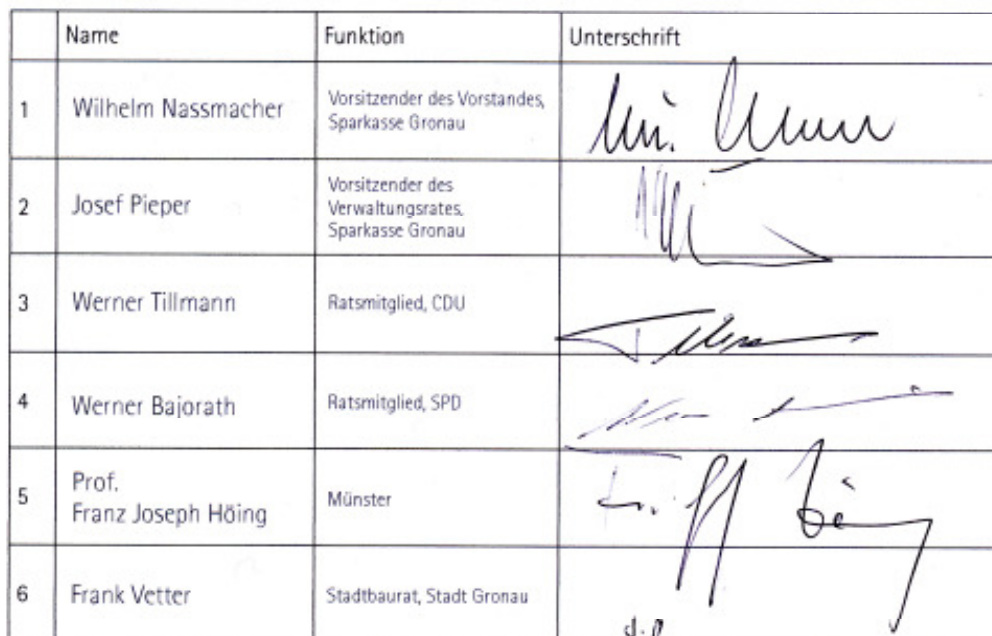 Name Funktion Unterschrift
1 Wilhelm Nassmacher Vorsitzender des Vorstandes,
Sparkasse Gronau
2 Josef Pieper Vorsitzender des
Verwaltungsrates,
Sparkasse Gronau
3 Werner Tillmann Ratsmitglied, CDU
4 Werner Bajorath Ratsmitglied, SPD
5 Prof.
Franz Joseph Höing Münster
6 Frank Vetter Stadtbaurat, Stadt Gronau